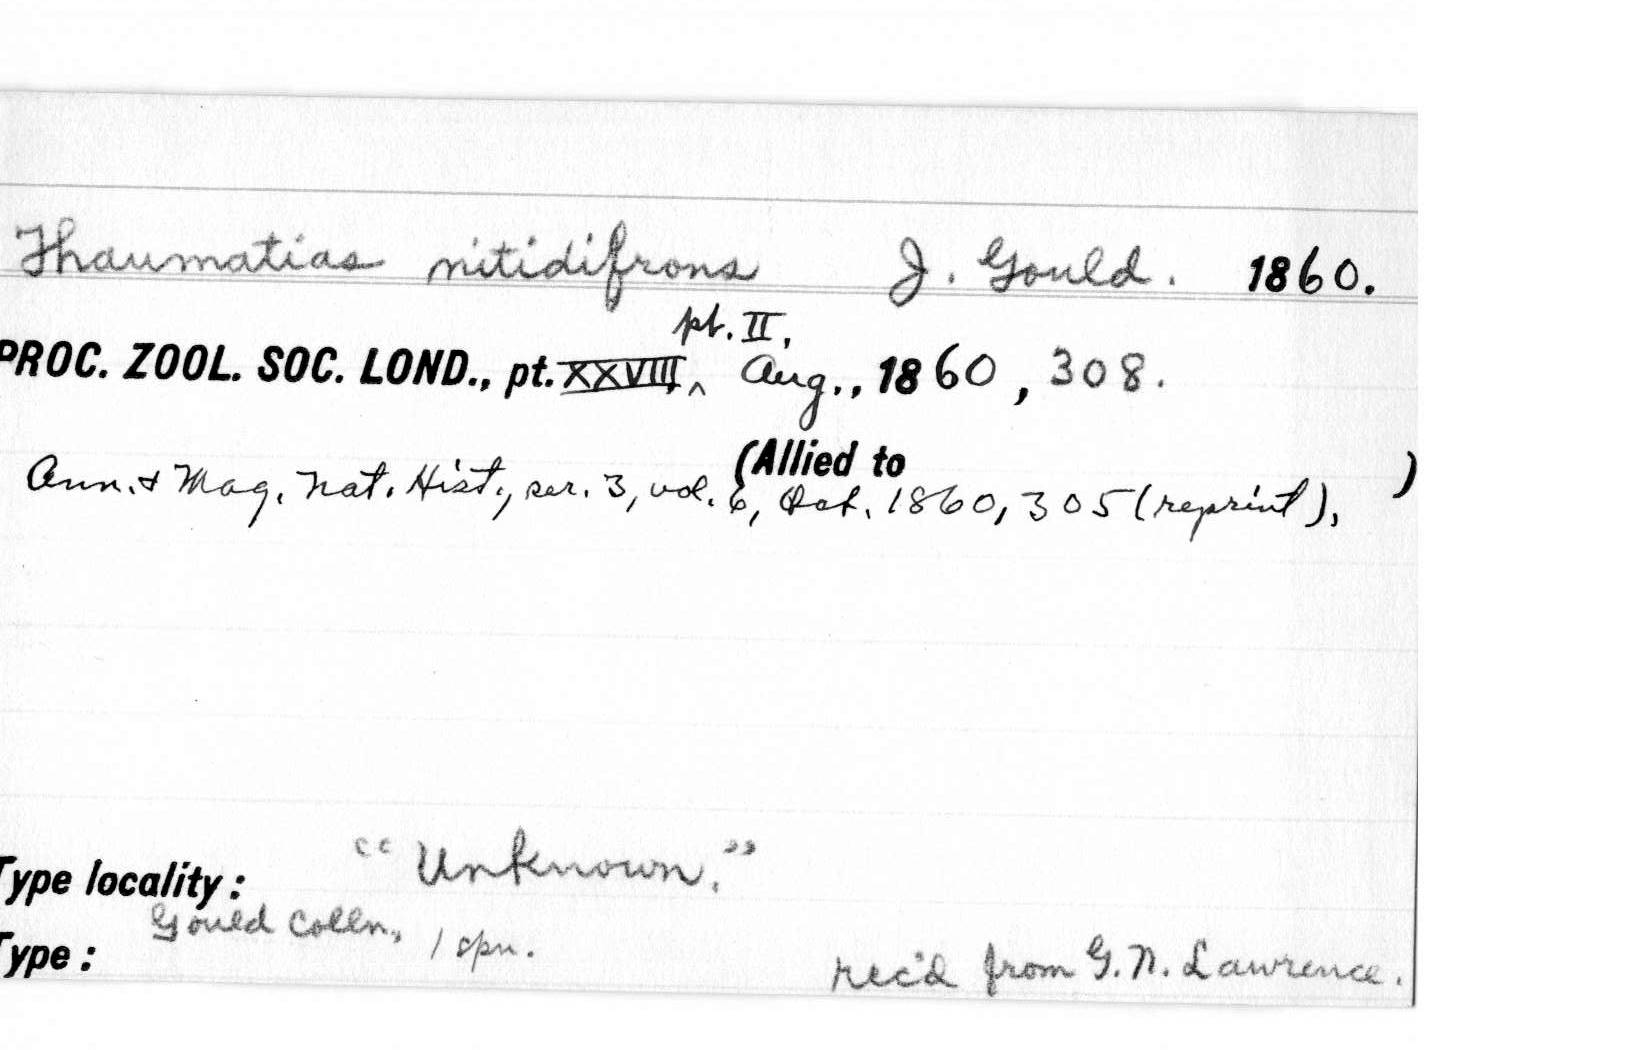 Thaumatias nitidifrons J. Gould. 1860.
pt. II,
PROC. ZOOL. SOC. LOND., pt. XXVIII, ^ Aug., 1860, 308.
(Allied to )
Ann. & Mag. Nat. Hist., ser. 3, vol. 6, Oct. 1860, 305 (reprint),
Type locality: "Unknown."
Gould Colln., 1 spn.
Type: rec'd from G. N. Lawrence.